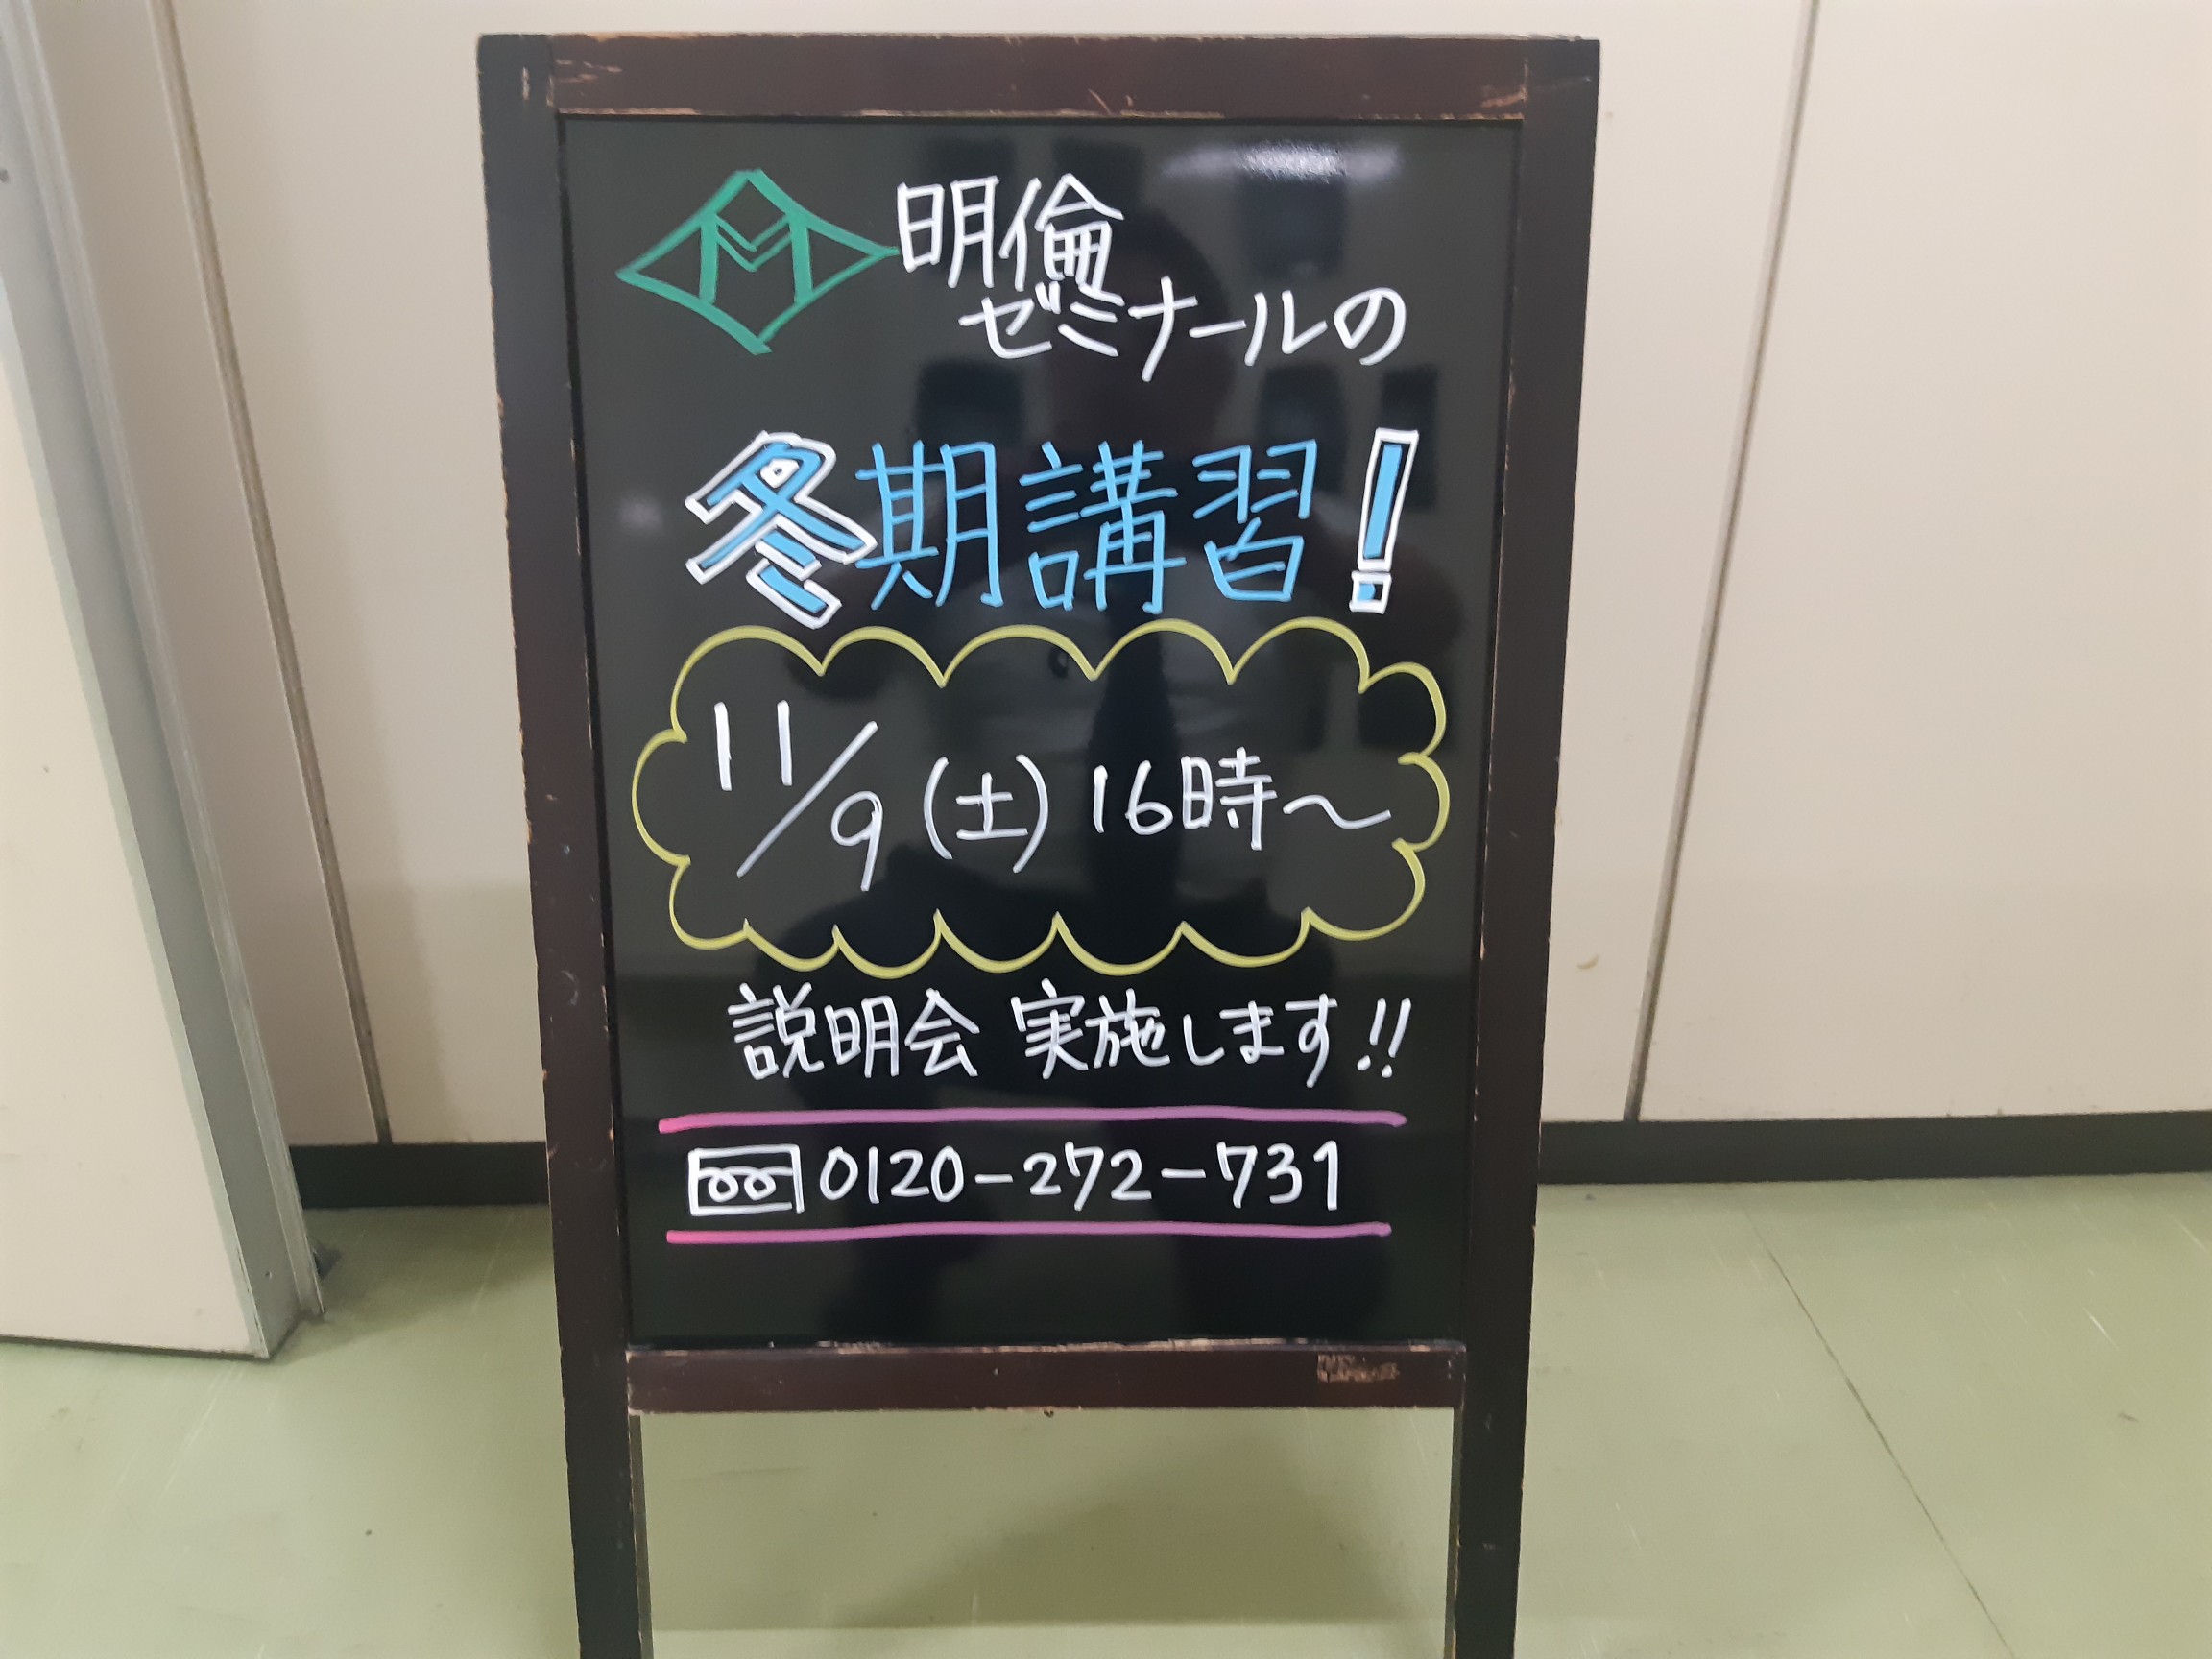 明倫
ゼミナールの
冬期講習！
11/9(土) 16時～
説明会 実施します!!
0120-272-731